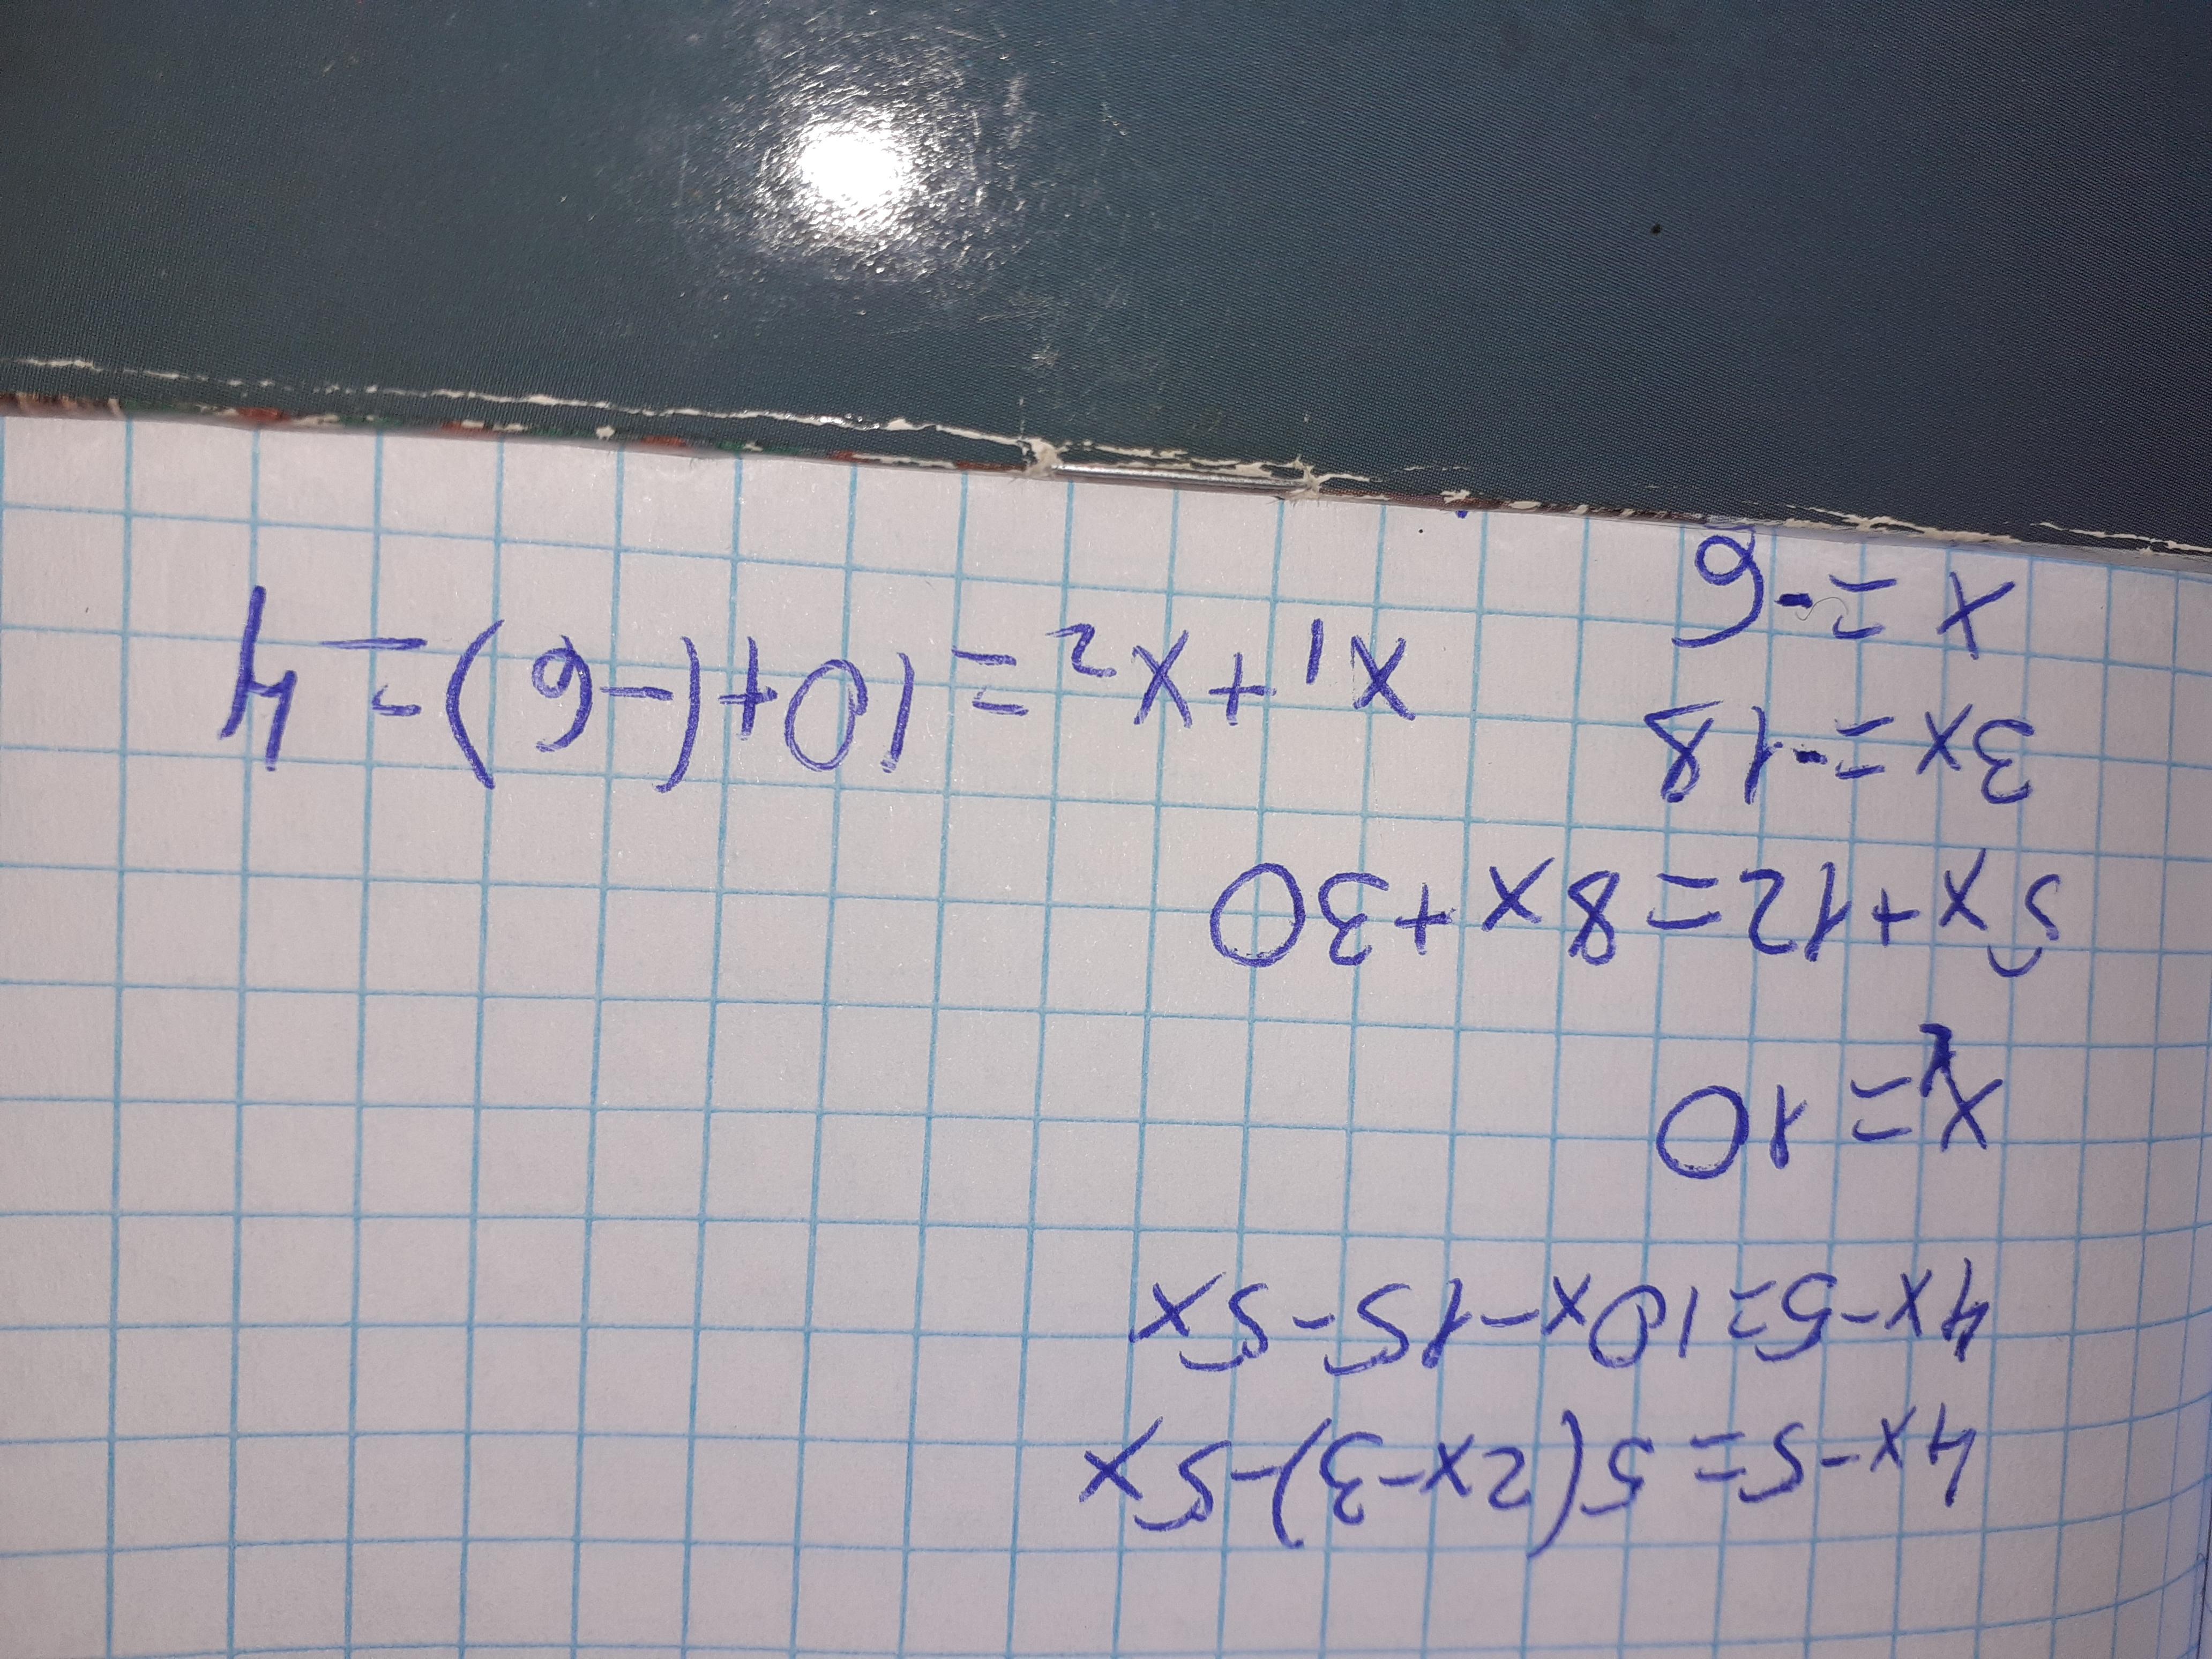 4x-5=5(2x-3)-5x
4x-5=10x-15-5x
x=10
5x+12=8x+30
3x=-18
x=-6
x₁+x₂=10+(-6)=4